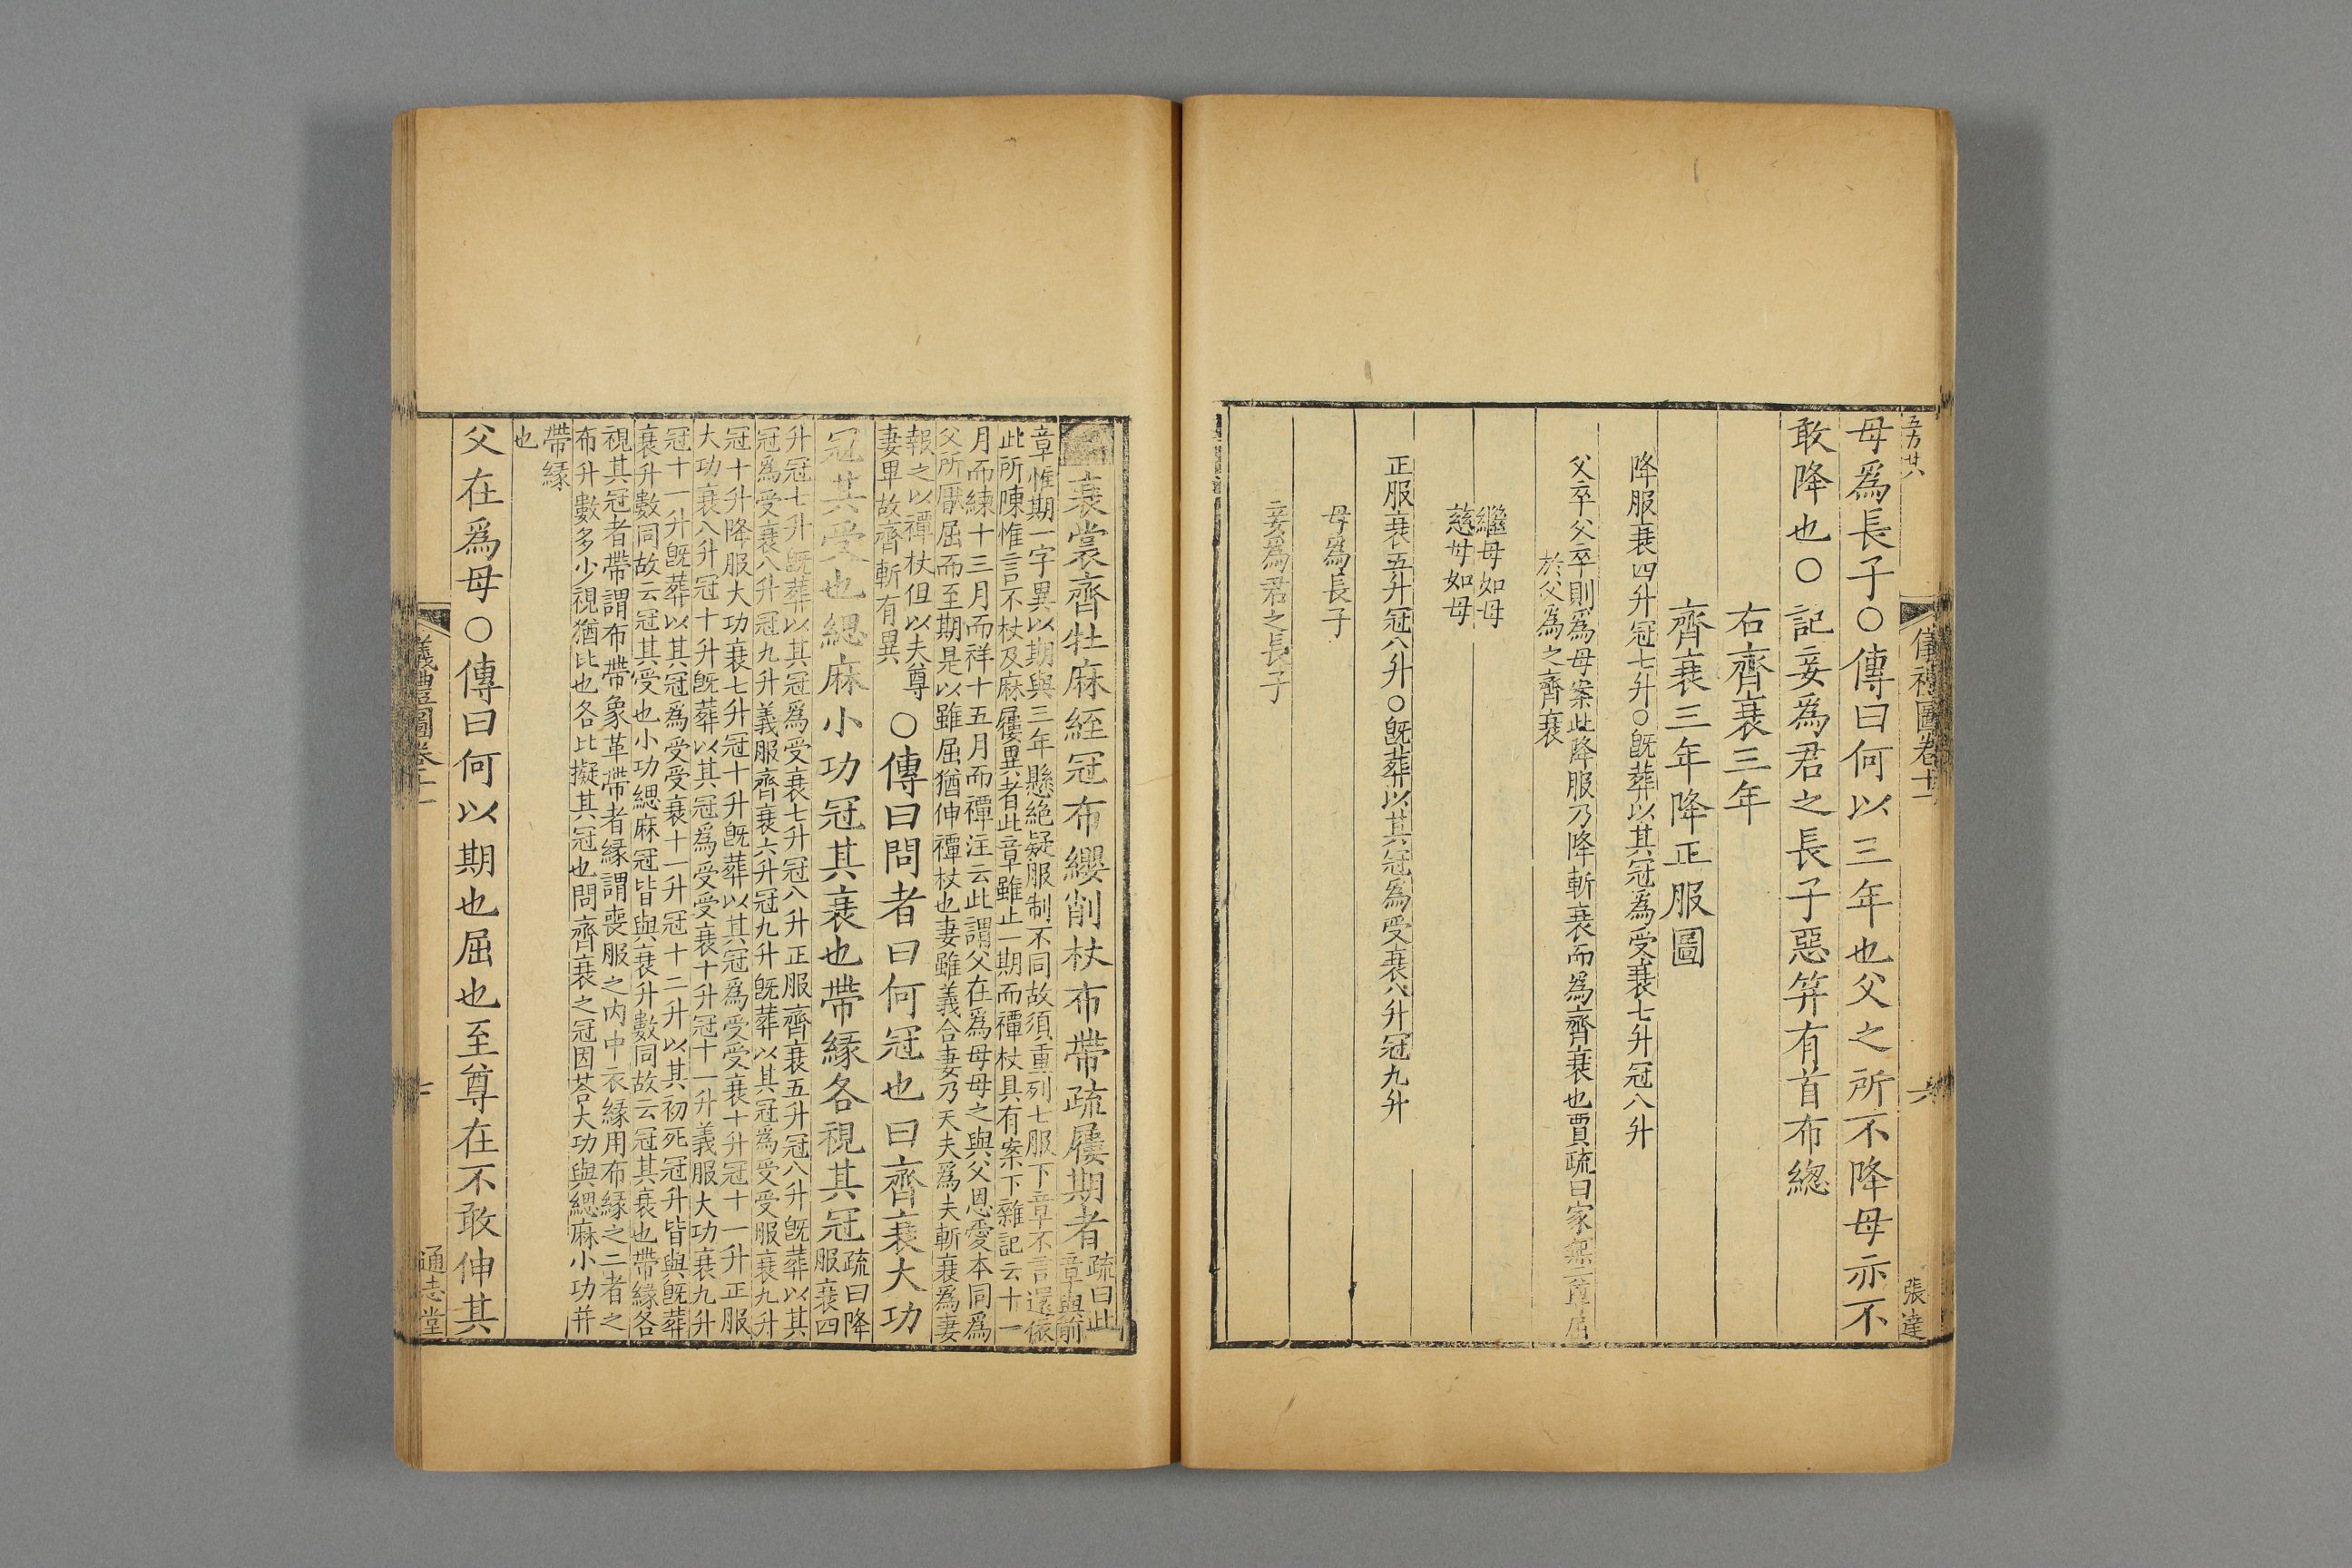 儀禮圖卷十一
六
張達
母爲長子○傳曰何以三年也父之所不降母亦不
敢降也○記妾爲君之長子惡笄有首布總
右齊衰三年
齊衰三年降正服圖
降服衰四升冠七升○旣葬以其冠爲受衰七升冠八升
父卒父卒則爲母案此降服乃降斬衰而爲齊衰也賈疏曰家無二尊屈
於父爲之齊衰
繼母如母
慈母如母
正服衰五升冠八升○旣葬以其冠爲受衰八升冠九升
母爲長子
妾爲君之長子
衰裳齊牡麻絰冠布纓削杖布帶疏屨期者
疏曰此
章與前
章惟期一字異以期與三年懸絶疑服制不同故須重列七服下章不言還依
此所陳惟言不杖及麻屨異者此章雖止一期而禫杖具有案下雜記云十一
月而練十三月而祥十五月而禫注云此謂父在爲母母之與父恩愛本同爲
父所厭屈而至期是以雖屈猶伸禫杖也妻雖義合妻乃天夫爲夫斬衰爲妻
報之以禫杖但以夫尊
妻卑故齊斬有異
○傳曰問者曰何冠也曰齊衰大功
冠其受也緦麻小功冠其衰也帶緣各視其冠
疏曰降
服衰四
升冠七升旣葬以其冠爲受衰七升冠八升正服齊衰五升冠八升旣葬以其
冠爲受衰八升冠九升義服齊衰六升冠九升旣葬以其冠爲受受服衰九升
冠十升降服大功衰七升冠十升旣葬以其冠爲受受衰十升冠十一升正服
大功衰八升冠十升旣葬以其冠爲受受衰十升冠十一升義服大功衰九升
冠十一升旣葬以其冠爲受受衰十一升冠十二升以其初死冠升皆與旣葬
衰升數同故云冠其受也小功緦麻冠皆與衰升數同故云冠其衰也帶緣各
視其冠者帶謂布帶象革帶者緣謂喪服之内中衣緣用布緣之二者之
布升數多少視猶比也各比擬其冠也問齊衰之冠因荅大功與緦麻小功并
帶緣
也
父在爲母○傳曰何以期也屈也至尊在不敢伸其
儀禮圖卷十一
七
通志堂